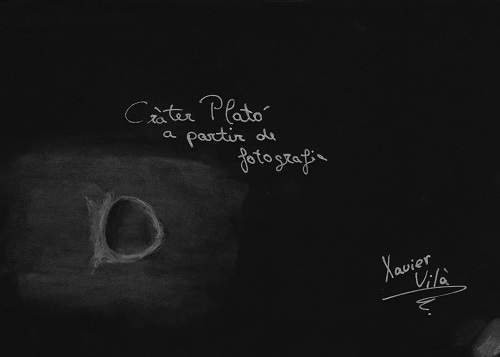 Cràter Plató
a partir de
fotografia
Xavier
Vilà